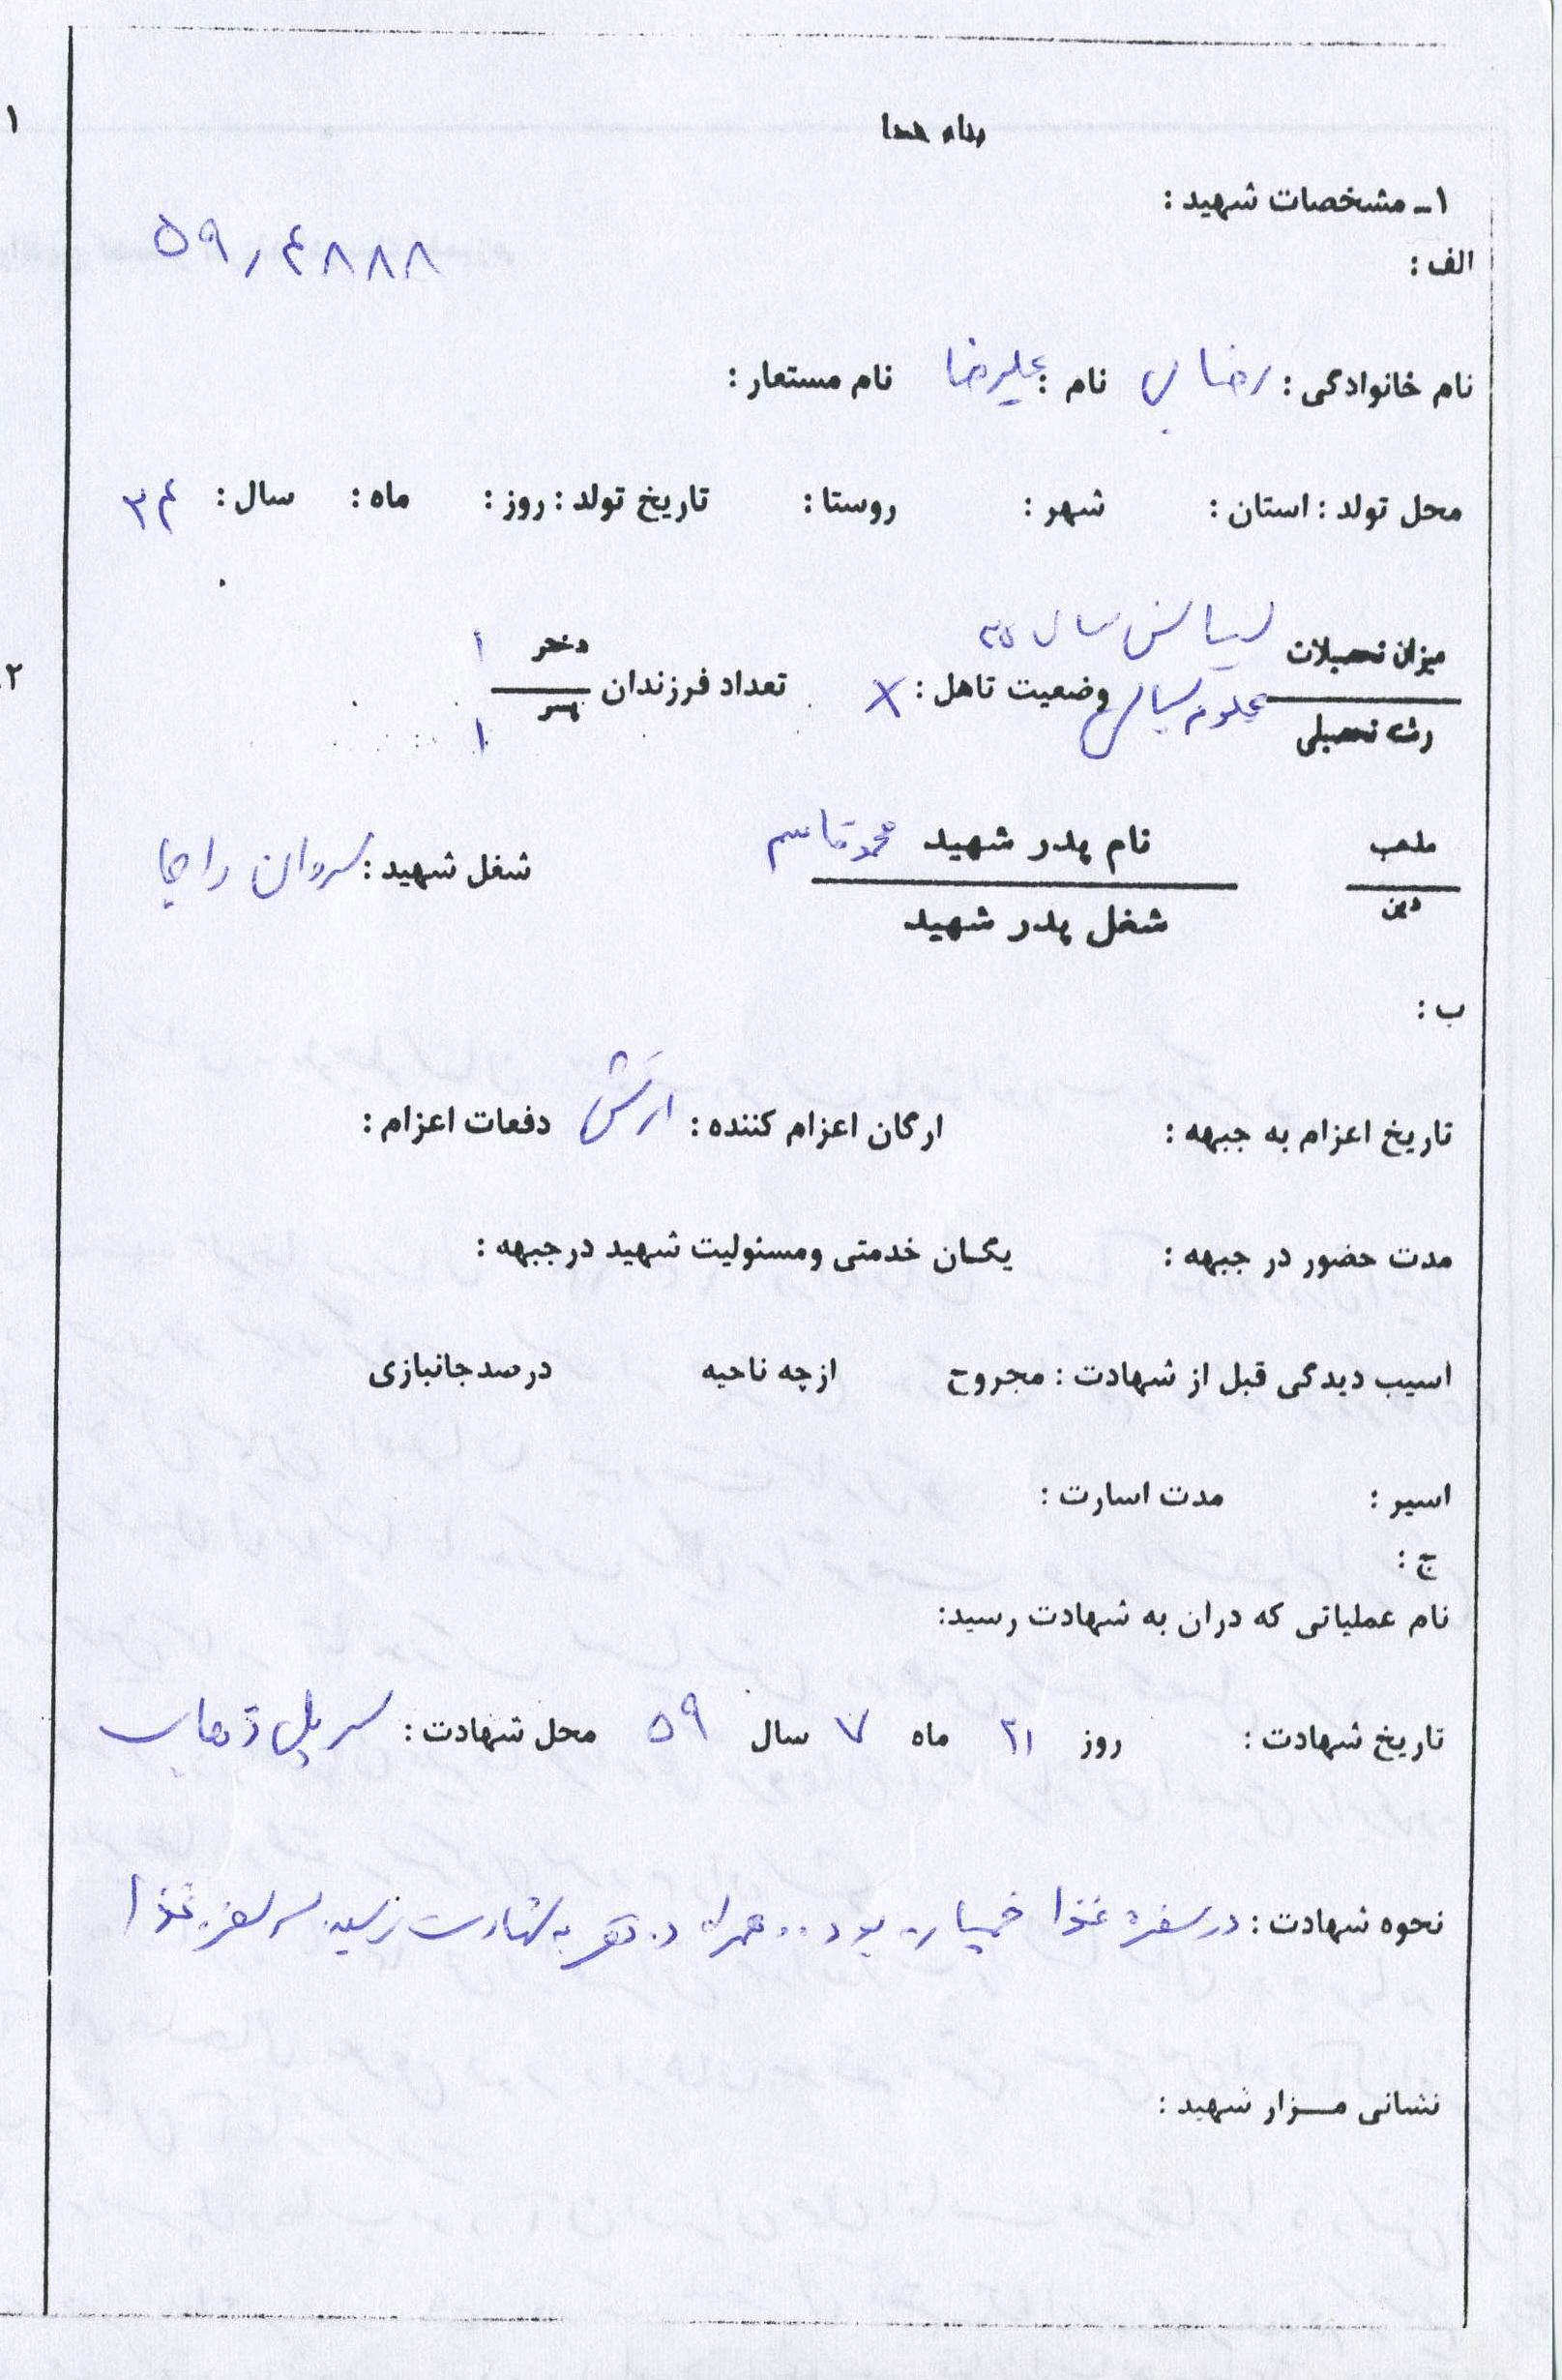 بنام خدا
۱ـ مشخصات شهید :
الف :
۵۹٫۴۸۸۸
نام خانوادگی : رضایی نام : علیرضا نام مستعار :
محل تولد : استان : شهر : روستا : تاریخ تولد : روز : ماه : سال : ۳۴
میزان تحصیلات لیسانس سال ۳۵
رشته تحصیلی علوم سیاسی وضعیت تاهل : X تعداد فرزندان دختر ۱
پسر ۱
مذهب نام پدر شهید محمدقاسم شغل شهید : سروان
دین شغل پدر شهید
ب :
تاریخ اعزام به جبهه : ارگان اعزام کننده : ارتش دفعات اعزام :
مدت حضور در جبهه : یگان خدمتی ومسئولیت شهید درجبهه :
اسیب دیدگی قبل از شهادت : مجروح ازچه ناحیه درصدجانبازی
اسیر : مدت اسارت :
ج :
نام عملیاتی که دران به شهادت رسید:
تاریخ شهادت : روز ۲۱ ماه ۷ سال ۵۹ محل شهادت : سرپل ذهاب
نحوه شهادت : در سفره غذا خمپاره بود .. همراه دو نفر به شهادت رسید سر سفره غذا
نشانی مزار شهید :
۱
۲.